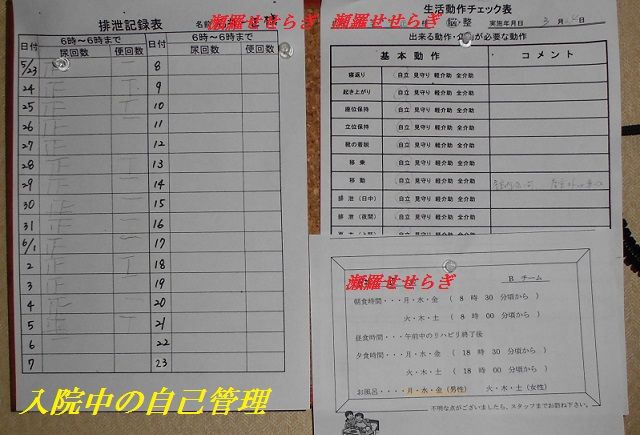 排泄記録表
名前
瀬羅せせらぎ
日付 6時~6時まで 日付 6時~6時まで
尿回数 便回数 尿回数 便回数
5/23 正 8
24 正 9
25 正 10
26 正 11
27 正 12
28 正 13
29 正 14
30 正 15
31 正 16
6/1 正 17
2 正 18
3 正 19
4 正 20
5 正 21
6 22
7 23
入院中の自己管理
生活動作チェック表
瀬羅せせらぎ
脳・整 実施年月日 3月
出来る動作・
が必要な動作
基本動作 コメント
寝返り 自立 見守り 軽介助 全介助
起き上がり 自立 見守り 軽介助 全介助
座位保持 自立 見守り 軽介助 全介助
立位保持 自立 見守り 軽介助 全介助
靴の着脱 自立 見守り 軽介助 全介助
移乗 自立 見守り 軽介助 全介助
移動 自立 見守り 軽介助 全介助
排泄(日中) 自立 見守り 軽介助 全介助
排泄(夜間) 自立 見守り 軽介助 全介助
瀬羅せせらぎ
Bチーム
朝食時間・・・月・水・金 ( 8時 30分頃から )
六・木・土 ( 8時 00分頃から )
昼食時間・・・午前中のリハビリ終了後
夕食時間・・・月・水・金 ( 18時 30分頃から )
六・木・土 ( 18時 00分頃から )
お風呂・・・月・水・金(男性) 六・木・土(女性)
不明な点がございましたら、スタッフまでお訪ね下さい。